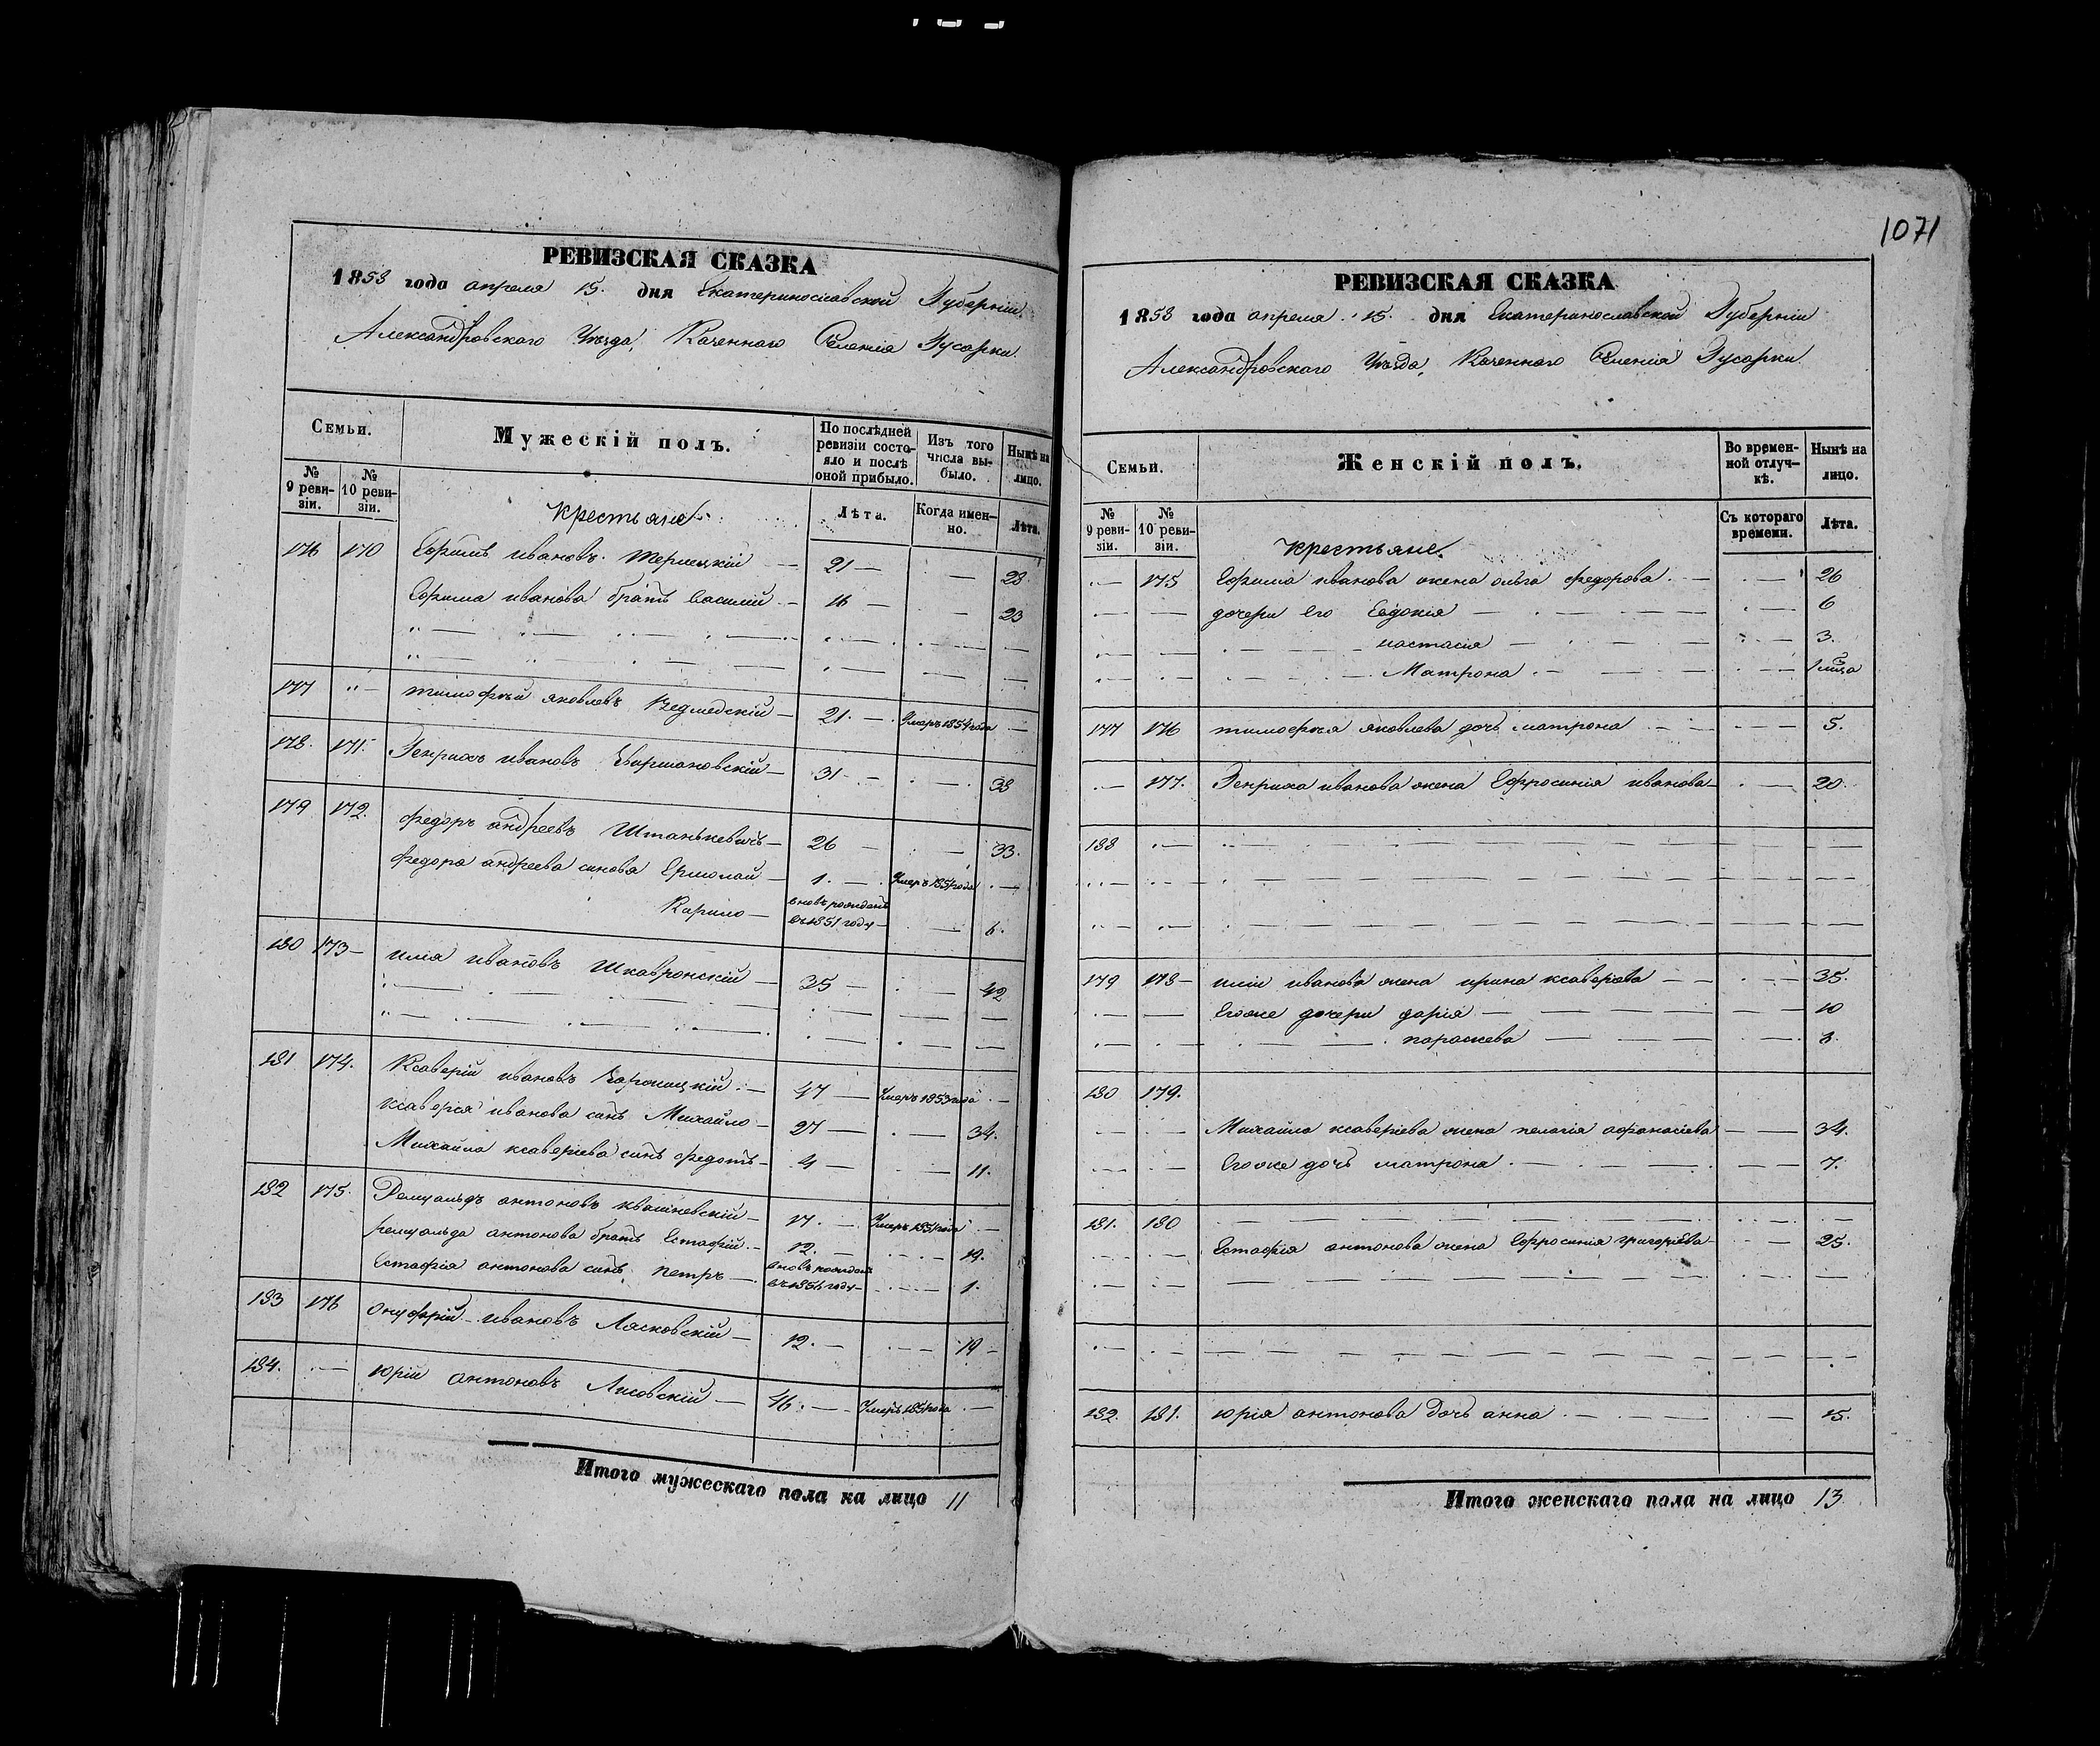 1071
РЕВИЗСКАЯ СКАЗКА
1858 года апреля 15. дня Екатеринославской Губерніи
Александровскаго Уѣзда, Казеннаго Селенія Гусарки
Семьи.
Мужескій полъ.
По послѣдней ревизіи состояло и послѣ оной прибыло.
Изъ того числа выбыло.
Нынѣ на лицо.
№ 9 ревизіи.
№ 10 ревизіи.
Лѣта.
Когда именно.
Лѣта.
крестьяне
176 170 Ефимъ ивановъ Терлецкій — 21 — — 28
Ефима иванова братъ василій — 16 — — 23
177 " — тимофѣй яковлевъ — 21. — Умеръ 1854 года —
178. 171. Генрихъ ивановъ — 31 — — 38
179 172. федоръ андреевъ Штанькевичъ — 26 — — 33.
федора андреева синовя Ермолай — 1. — Умеръ 1851 года —
Карпло — вновь рожденъ въ 1851 году — — 6.
180 173 — илія ивановъ Шкавронскій — 35 — — 42
181 174. Ксаверій ивановъ — 47 — Умеръ 1853 года —
ксаверія иванова синъ Михайло — 27 — — 34.
Михайла ксаверіева синъ федотъ — 4 — — 11.
182 175. Ромуальдъ антоновъ квашневскій — 17. — Умеръ 1851 года —
ромуальда антонова братъ Естафій. — 12. — — 19.
Естафія антонова синъ петръ — вновь рожденъ въ 1856 году — — 1.
183 176 онуфрій ивановъ Лясковскій — 12. — — 19 —
184. — юрій антоновъ Лисовскій — 46. — Умеръ 1851 года —
Итого мужескаго пола на лицо 11
РЕВИЗСКАЯ СКАЗКА
1858 года апреля 15. дня Екатеринославской Губерніи
Александровскаго Уѣзда, Казеннаго Селенія Гусарки
Семьи.
Женскій полъ.
Во временной отлучкѣ.
Нынѣ на лицо.
№ 9 ревизіи.
№ 10 ревизіи.
Съ котораго времени.
Лѣта.
крестьяне.
— 175 Ефима иванова жена ольга федорова. — — 26
дочери его Евдокія — — 6
настасія — — 3.
Матрона — —
177 176 тимофѣя яковлева дочь матрона — — 5.
— 177. Генриха иванова жена Ефросинія иванова — — 20.
188 —
179 178 — иліи иванова жена ирина ксаверіева — — 35.
Егоже дочери дарія — — 10
параскева — — 8.
180 179.
Михайла ксаверіева жена пелагія афанасіева — — 34.
Егоже дочь матрона — — 7.
181. 180 —
Естафія антонова жена Ефросинія григоріева — — 25.
182. 181. юрія антонова дочь анна — — 15.
Итого женскаго пола на лицо 13